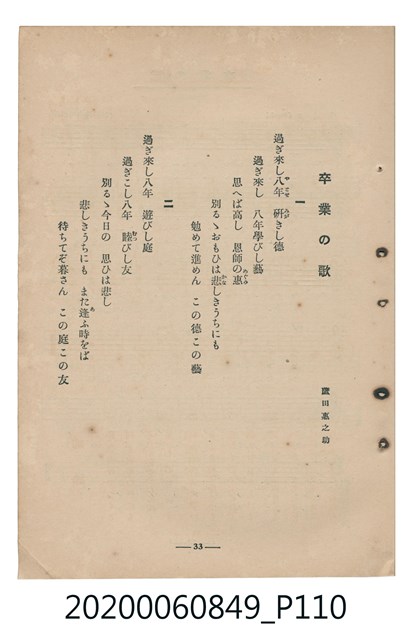 卒業の歌
蘆田惠之助
一
過ぎ來し八年 研きし德
過ぎ來し 八年學びし藝
思へば高し 恩師の惠
別るゝおもひは悲しきうちにも
勉めて進めん この德この藝
二
過ぎ來し八年 遊びし庭
過ぎこし八年 睦びし友
別るゝ今日の 思ひは悲し
悲しきうちにも また逢ふ時をば
待ちてぞ暮さん この庭この友
33
20200060849_P110